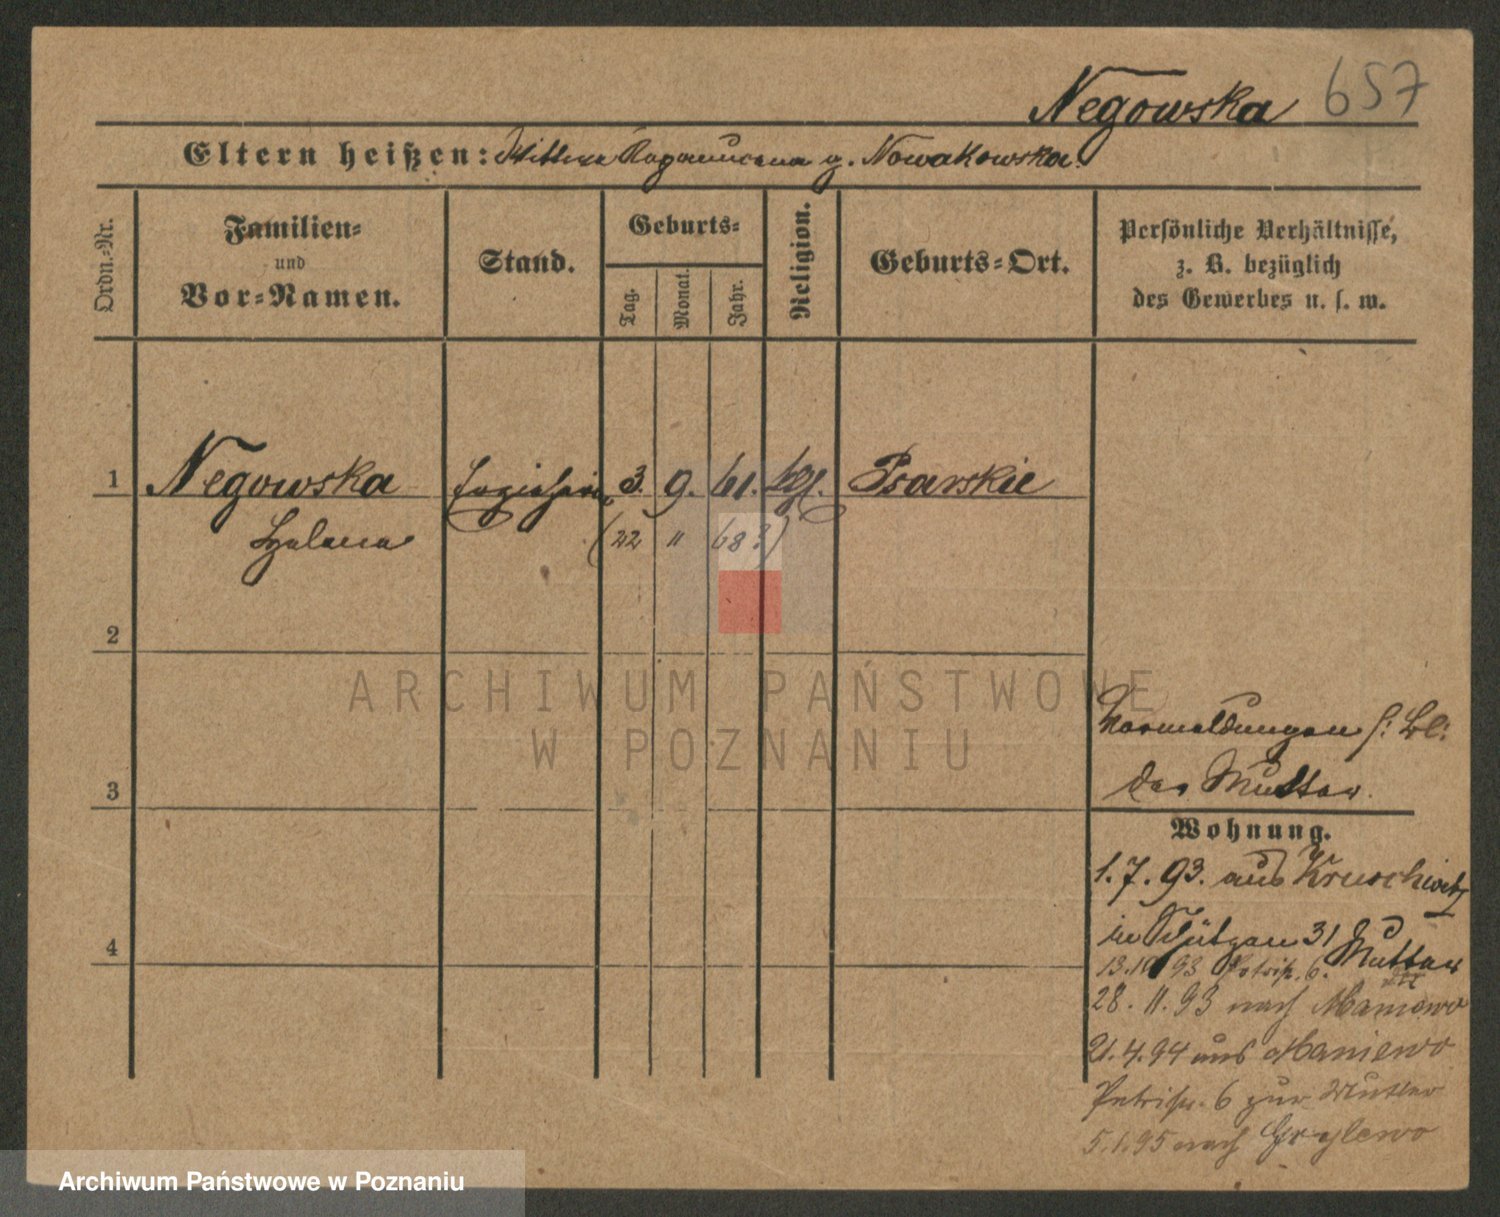 Negowska 657
Eltern heißen: Nepomucena g. Nowakowska.
Ordn.-Nr.
Familien- und Vor-Namen.
Stand.
Geburts-
Tag.
Monat.
Jahr.
Religion.
Geburts-Ort.
Persönliche Verhältnisse,
z. B. bezüglich
des Gewerbes u. s. w.
1 Negowska 3. 9. 61. kgl. Psarskie
Helena (22 " 68?)
2
3
4
Vormeldungen s: Bl:
der Mutter.
Wohnung.
1.7.93. aus Kruschwitz
in Schützen 31 Mutter
13.10 93 Petristr. 6.
28.11.93 nach Maniewo
21.4.94 aus Maniewo
Petristr. 6 zur Mutter
5.1.95 nach Grylewo
ARCHIWUM PAŃSTWOWE
W POZNANIU
Archiwum Państwowe w Poznaniu